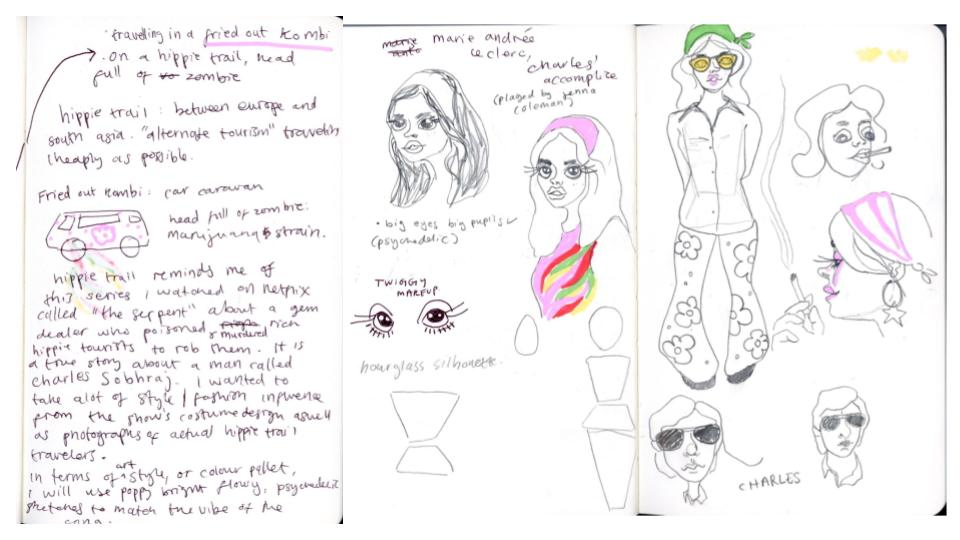 traveling in a fried out Kombi
. On a hippie trail, head
full of zombie
hippie trail : between europe and
south asia. "alternate tourism" traveling
cheaply as possible.
Fried out Kombi: car caravan
head full of zombie:
marijuana strain.
hippie trail reminds me of
this series i watched on netflix
called "the serpent" about a gem
dealer who poisoned & murdered rich
hippie tourists to rob them. It is
a true story about a man called
charles Sobhraj. I wanted to
take alot of style / fashion influence
from the show's costume design aswell
as photographs of actual hippie trail
travelers.
In terms of art style, or colour pellet,
i will use poppy bright flowy, psychedelic
sketches to match the vibe of the
song.
marie andrée
leclerc,
charles'
accomplice
(played by jenna
coleman)
• big eyes big pupils
(psychedelic)
TWIGGY
MAKEUP
hourglass silhouette.
CHARLES